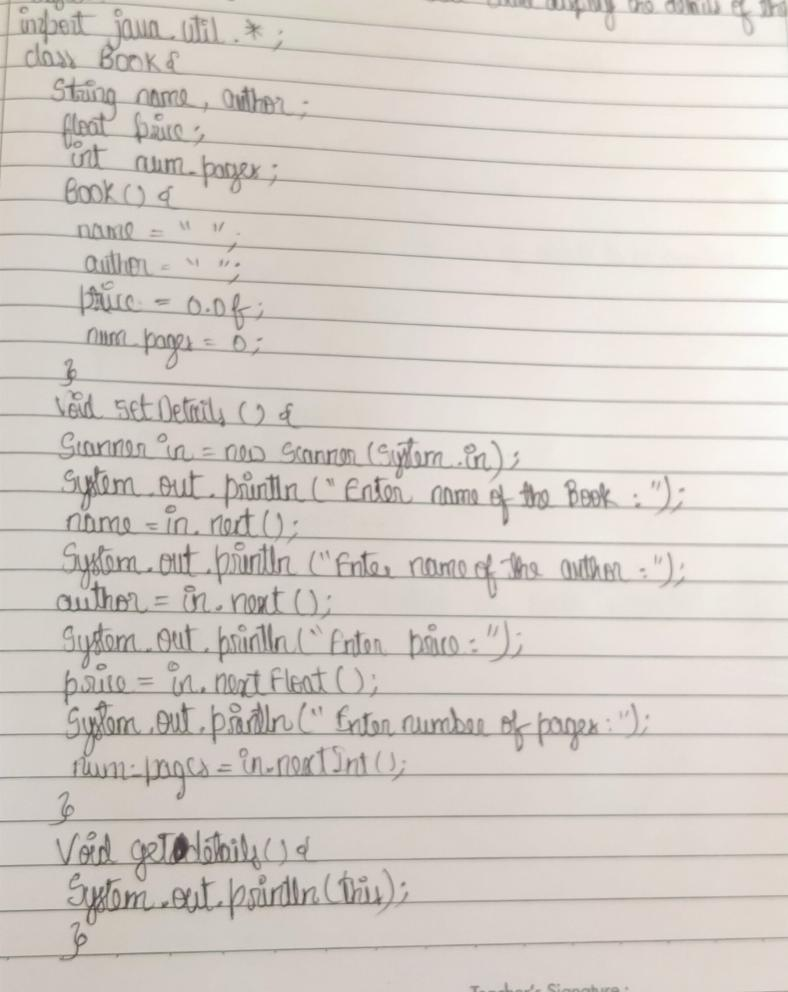 display the details of the
import java.util.*;
class Book{
String name, author;
float price;
int num_pages;
Book() {
name = " ";
author = " ";
price = 0.0f;
num_pages = 0;
}
void setDetails () {
Scanner in = new Scanner (System.in);
System.out.println (" Enter name of the Book : ");
name = in.next();
System.out.println ("Enter name of the author : ");
author = in.next ();
System.out.println(" Enter price : ");
price = in.nextFloat ();
System.out.println (" Enter number of pages : ");
num_pages = in.nextInt ();
}
Void getdetails() {
System.out.println (this);
}
Teacher's Signature :